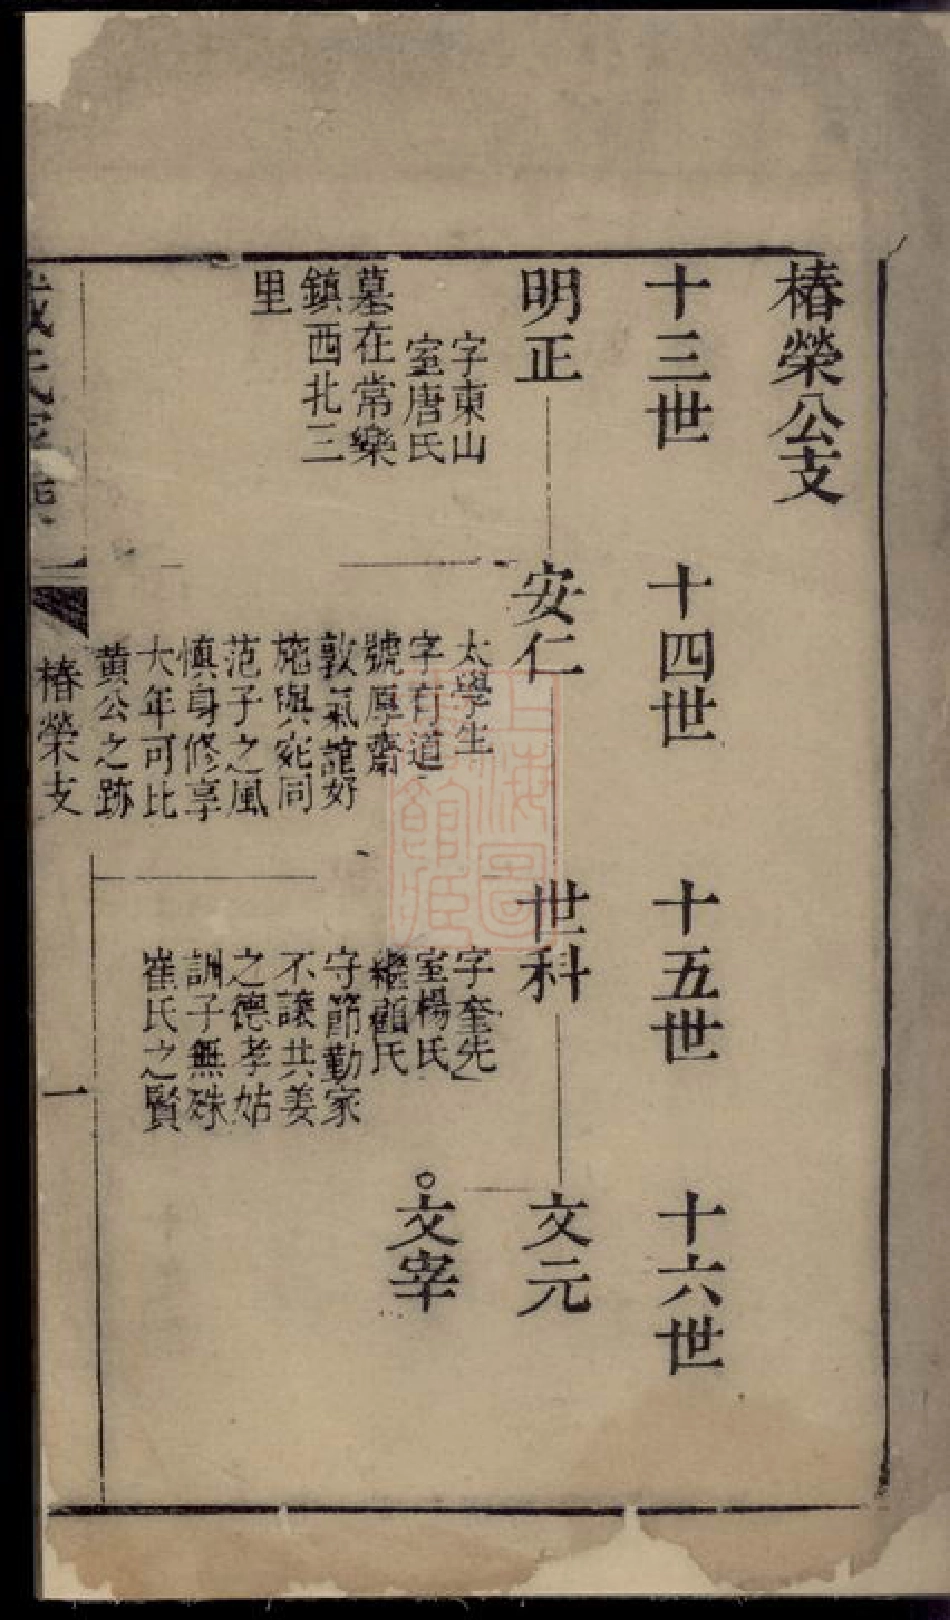 椿榮公支
十三世
十四世
十五世
十六世
明正
字東山
室唐氏
墓在常樂
鎮西北三
里
安仁
太學生
字有道
號厚齋
敦氣誼好
施與宛同
范子之風
慎身修享
大年可比
黄公之跡
世科
字奎先
室楊氏
繼顧氏
守節勤家
不讓共姜
之德孝姑
訓子無殊
崔氏之賢
文元
文宰
氏家
椿榮支
一
上海圖
書館藏